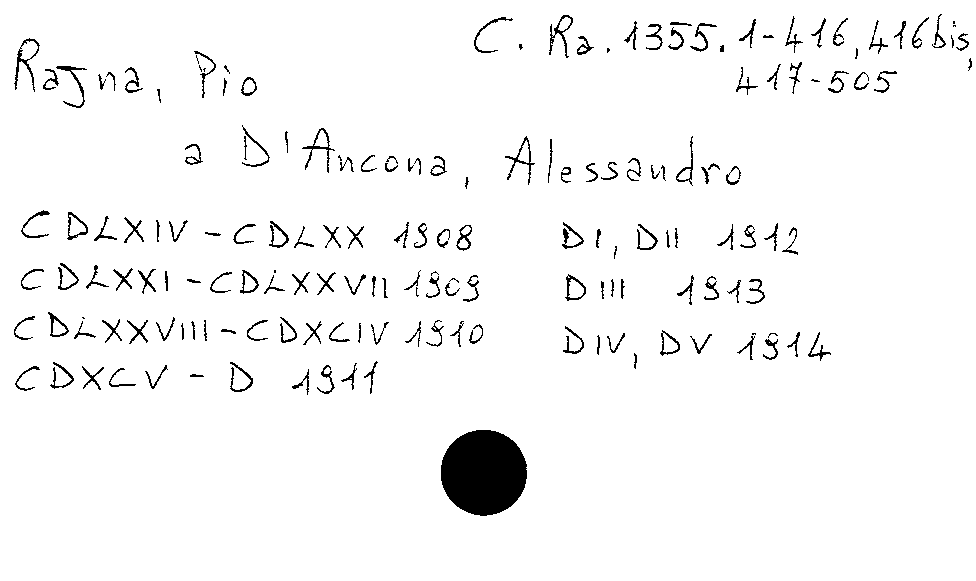 C. Ra. 1355. 1-416, 416 bis,
417-505
Rajna, Pio
a D'Ancona, Alessandro
CDLXIV - CDLXX 1908
CDLXXI - CDLXXVII 1909
CDLXXVIII - CDXCIV 1910
CDXCV - D 1911
DI, DII 1912
DIII 1913
DIV, DV 1914